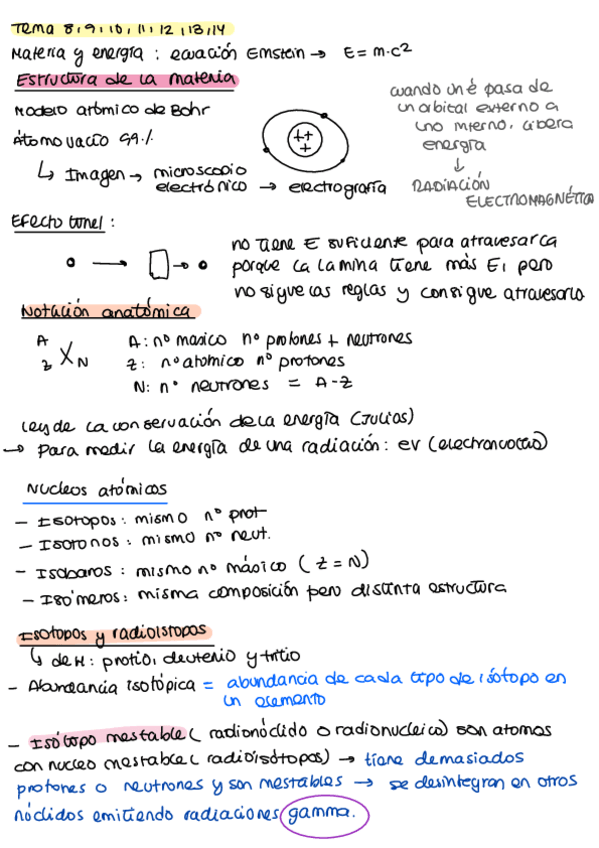 Tema 8, 9, 10, 11, 12, 13, 14
Materia y energía: ecuación Einstein → E = m·c²
Estructura de la materia
Modelo atómico de Bohr
Átomo vacío 99.%
↳ Imagen → microscopio electrónico → electrografía
++
+
cuando un é pasa de
un orbital externo a
uno interno, libera
energía
↓
RADIACIÓN
ELECTROMAGNÉTICA
Efecto tunel:
no tiene E suficiente para atravesarla
porque la lamina tiene más E, pero
no sigue las reglas y consigue atravesarlo
Notación anatómica
A
Z X N
A: nº masico nº protones + neutrones
Z: nº atomico nº protones
N: nº neutrones = A-Z
Ley de la conservación de la energía (Julios)
→ Para medir la energía de una radiación: ev (electronvoltio)
Nucleos atómicos
- Isotopos: mismo nº prot
- Isotonos: mismo nº neut.
- Isobaros: mismo no másico (Z = N)
- Isómeros: misma composición pero distinta estructura
Isotopos y radioístopos
↳ de H: protio, deuterio y tritio
- Abundancia isotópica = abundancia de cada tipo de isótopo en
un elemento
- Isótopo inestable (radionóclido o radionucleico) son atomos
con nucleo inestable (radioisótopos) → tiene demasiados
protones o neutrones y son inestables → se desintegran en otros
nóclidos emitiendo radiaciones gamma.